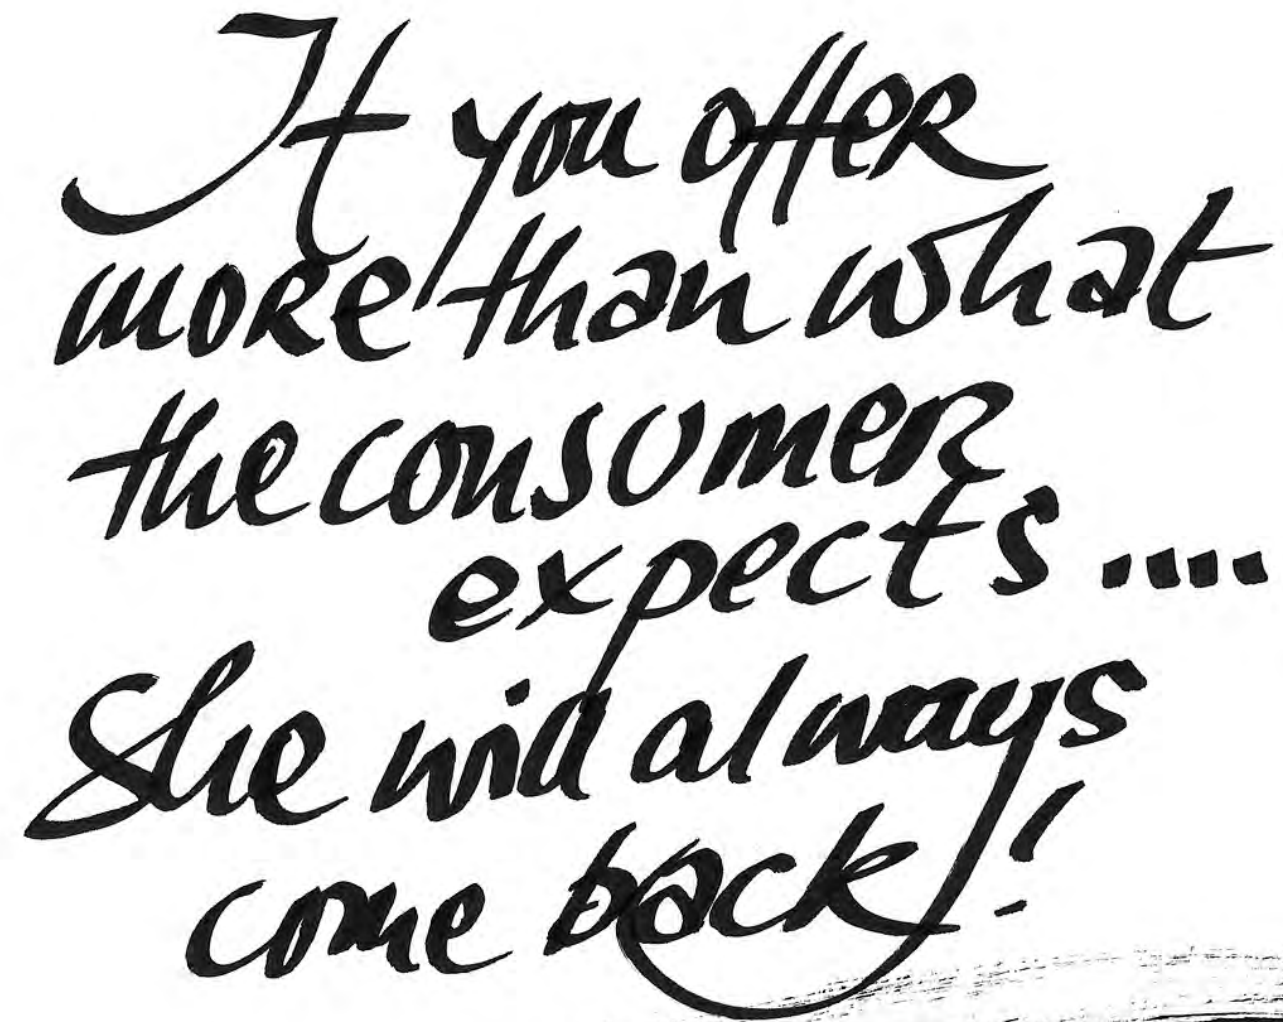 If you offer
more than what
the consumer
expects....
She will always
come back!